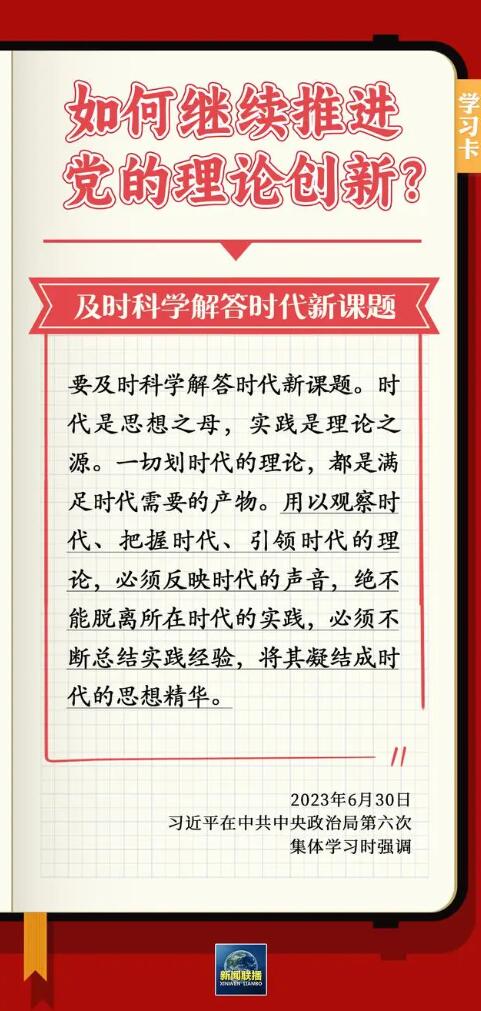 如何继续推进
党的理论创新？
学习卡
及时科学解答时代新课题
要及时科学解答时代新课题。时
代是思想之母，实践是理论之
源。一切划时代的理论，都是满
足时代需要的产物。用以观察时
代、把握时代、引领时代的理
论，必须反映时代的声音，绝不
能脱离所在时代的实践，必须不
断总结实践经验，将其凝结成时
代的思想精华。
2023年6月30日
习近平在中共中央政治局第六次
集体学习时强调
新闻联播
XINWEN LIANBO